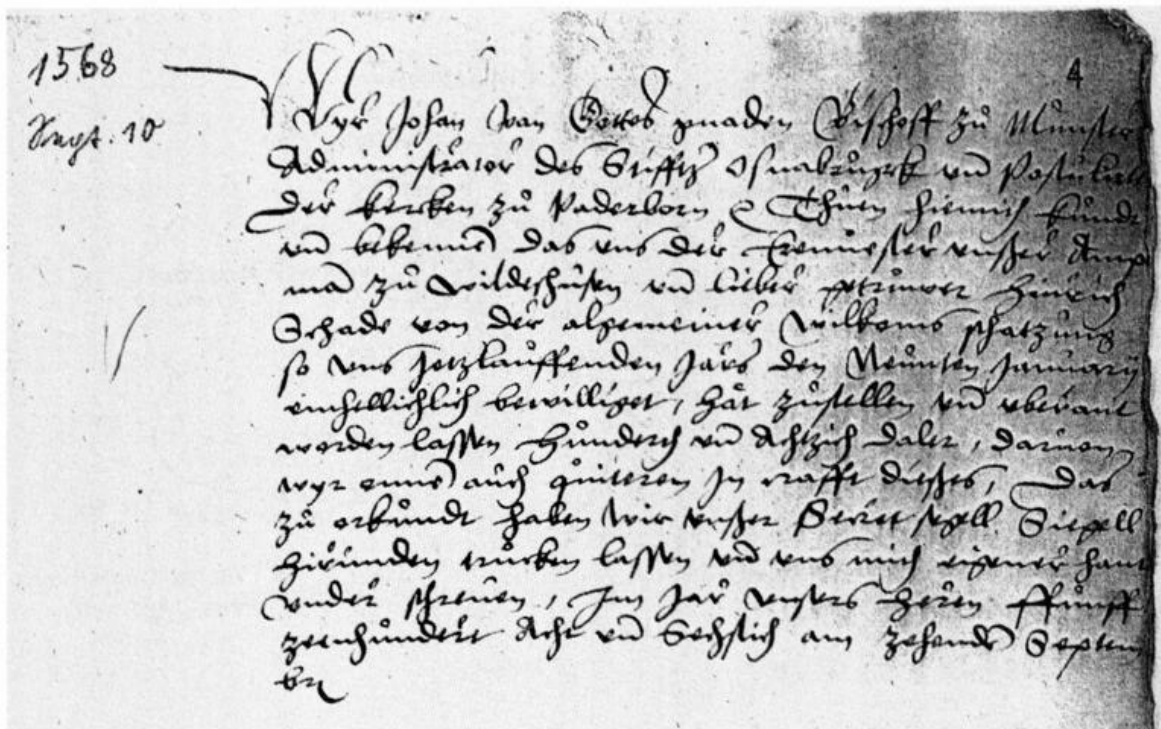 1568
Sept. 10
4
Wyr Johan van Gottes gnaden Bischoff zu Munster
Administrator des Stifftz Osnabrugk vn Postulirter
der kercken zu Paderborn Thuen hiemich kundt
vn bekennen das vns der Ernuester vnßer Amp
man zu Wildeshusen vn lieber getruwer Hinrich
Schade von der algemeiner Wilkoms schatzung
so vns Jetzlauffenden Jars den Neunten January
einhellichlich bewilliget, hat zustellen vn vberant
worden lassen Hunderch vn Achtzich daler, daruon
wyr auch quiteren In crafft dießes, Das
zu orkundt haben Wir vnßer Secret segell Siegell
hirunden trucken lassen vn vns mich eigener hant
vnder schreuen, Im Jar vnsers Heren Ffunff
zeenhundert Acht vn Sechslich am zehenden Septem
br